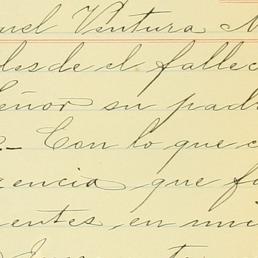 uel Ventura M
les desde el fallec
Señor su padr
Con lo que c
gencia, que fi
entes, en mi